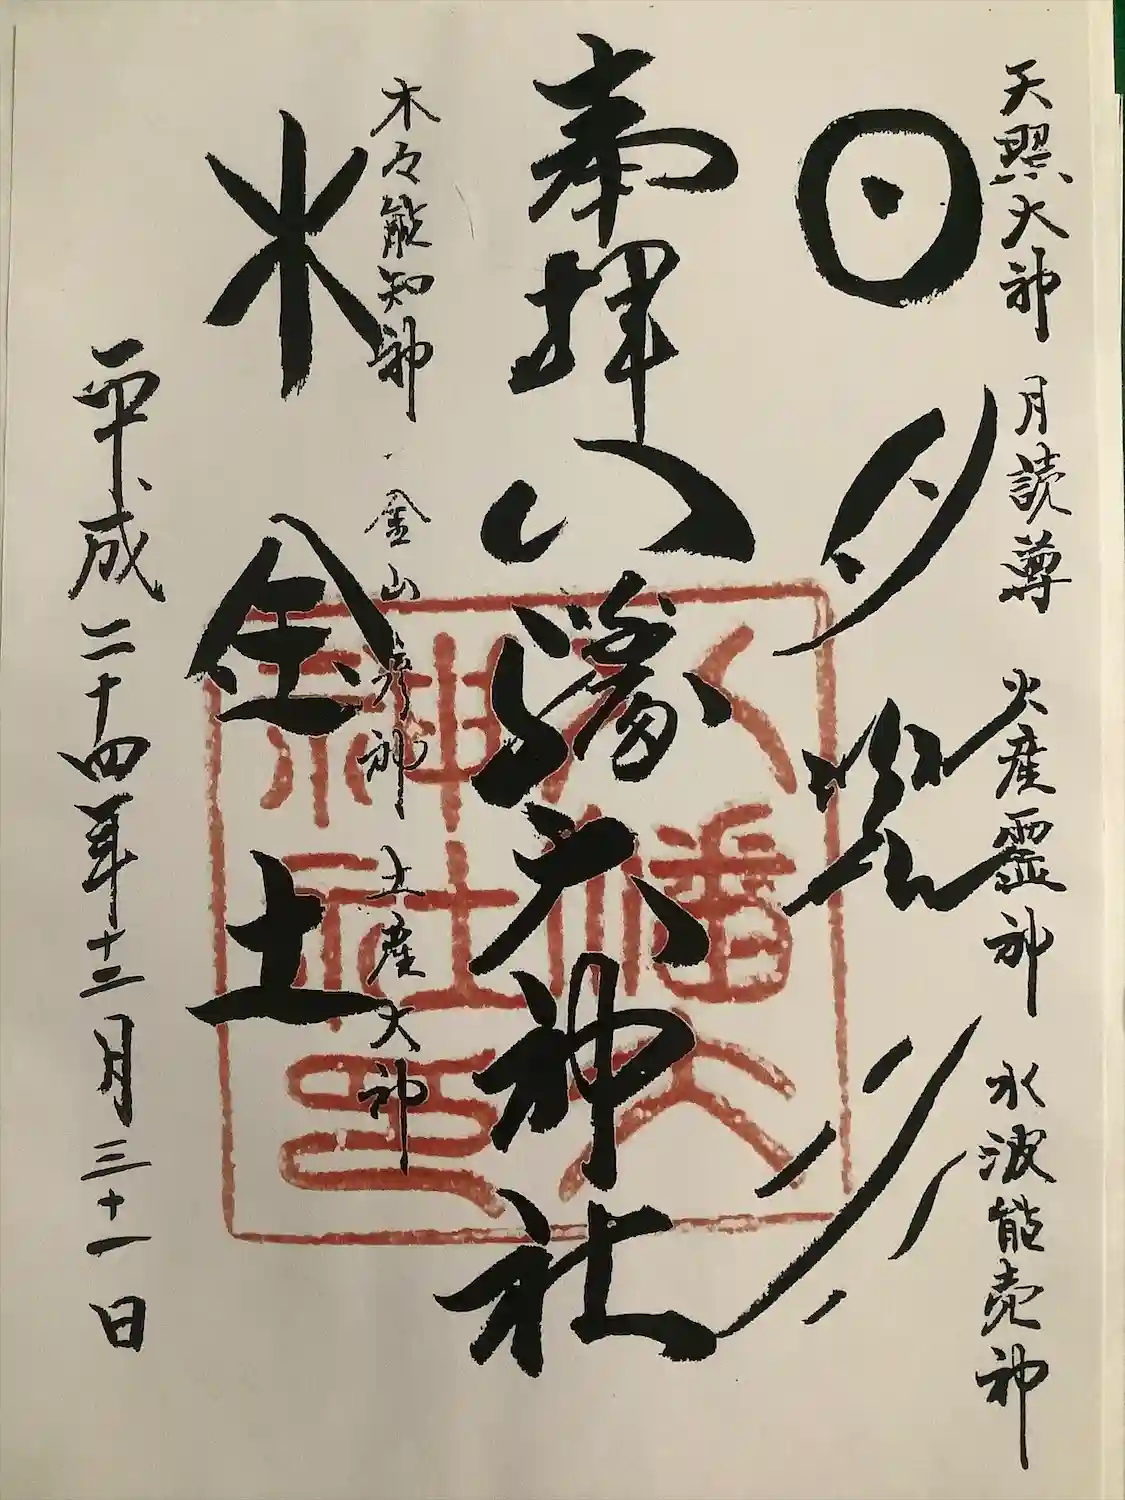 天照大神 月読尊 火産霊神 水波能売神
日 月 火 水
奉拝 八幡大神社
木々能知神 金山彦神 土産大神
木 金 土
平成二十四年十二月三十一日
八幡大
神社印